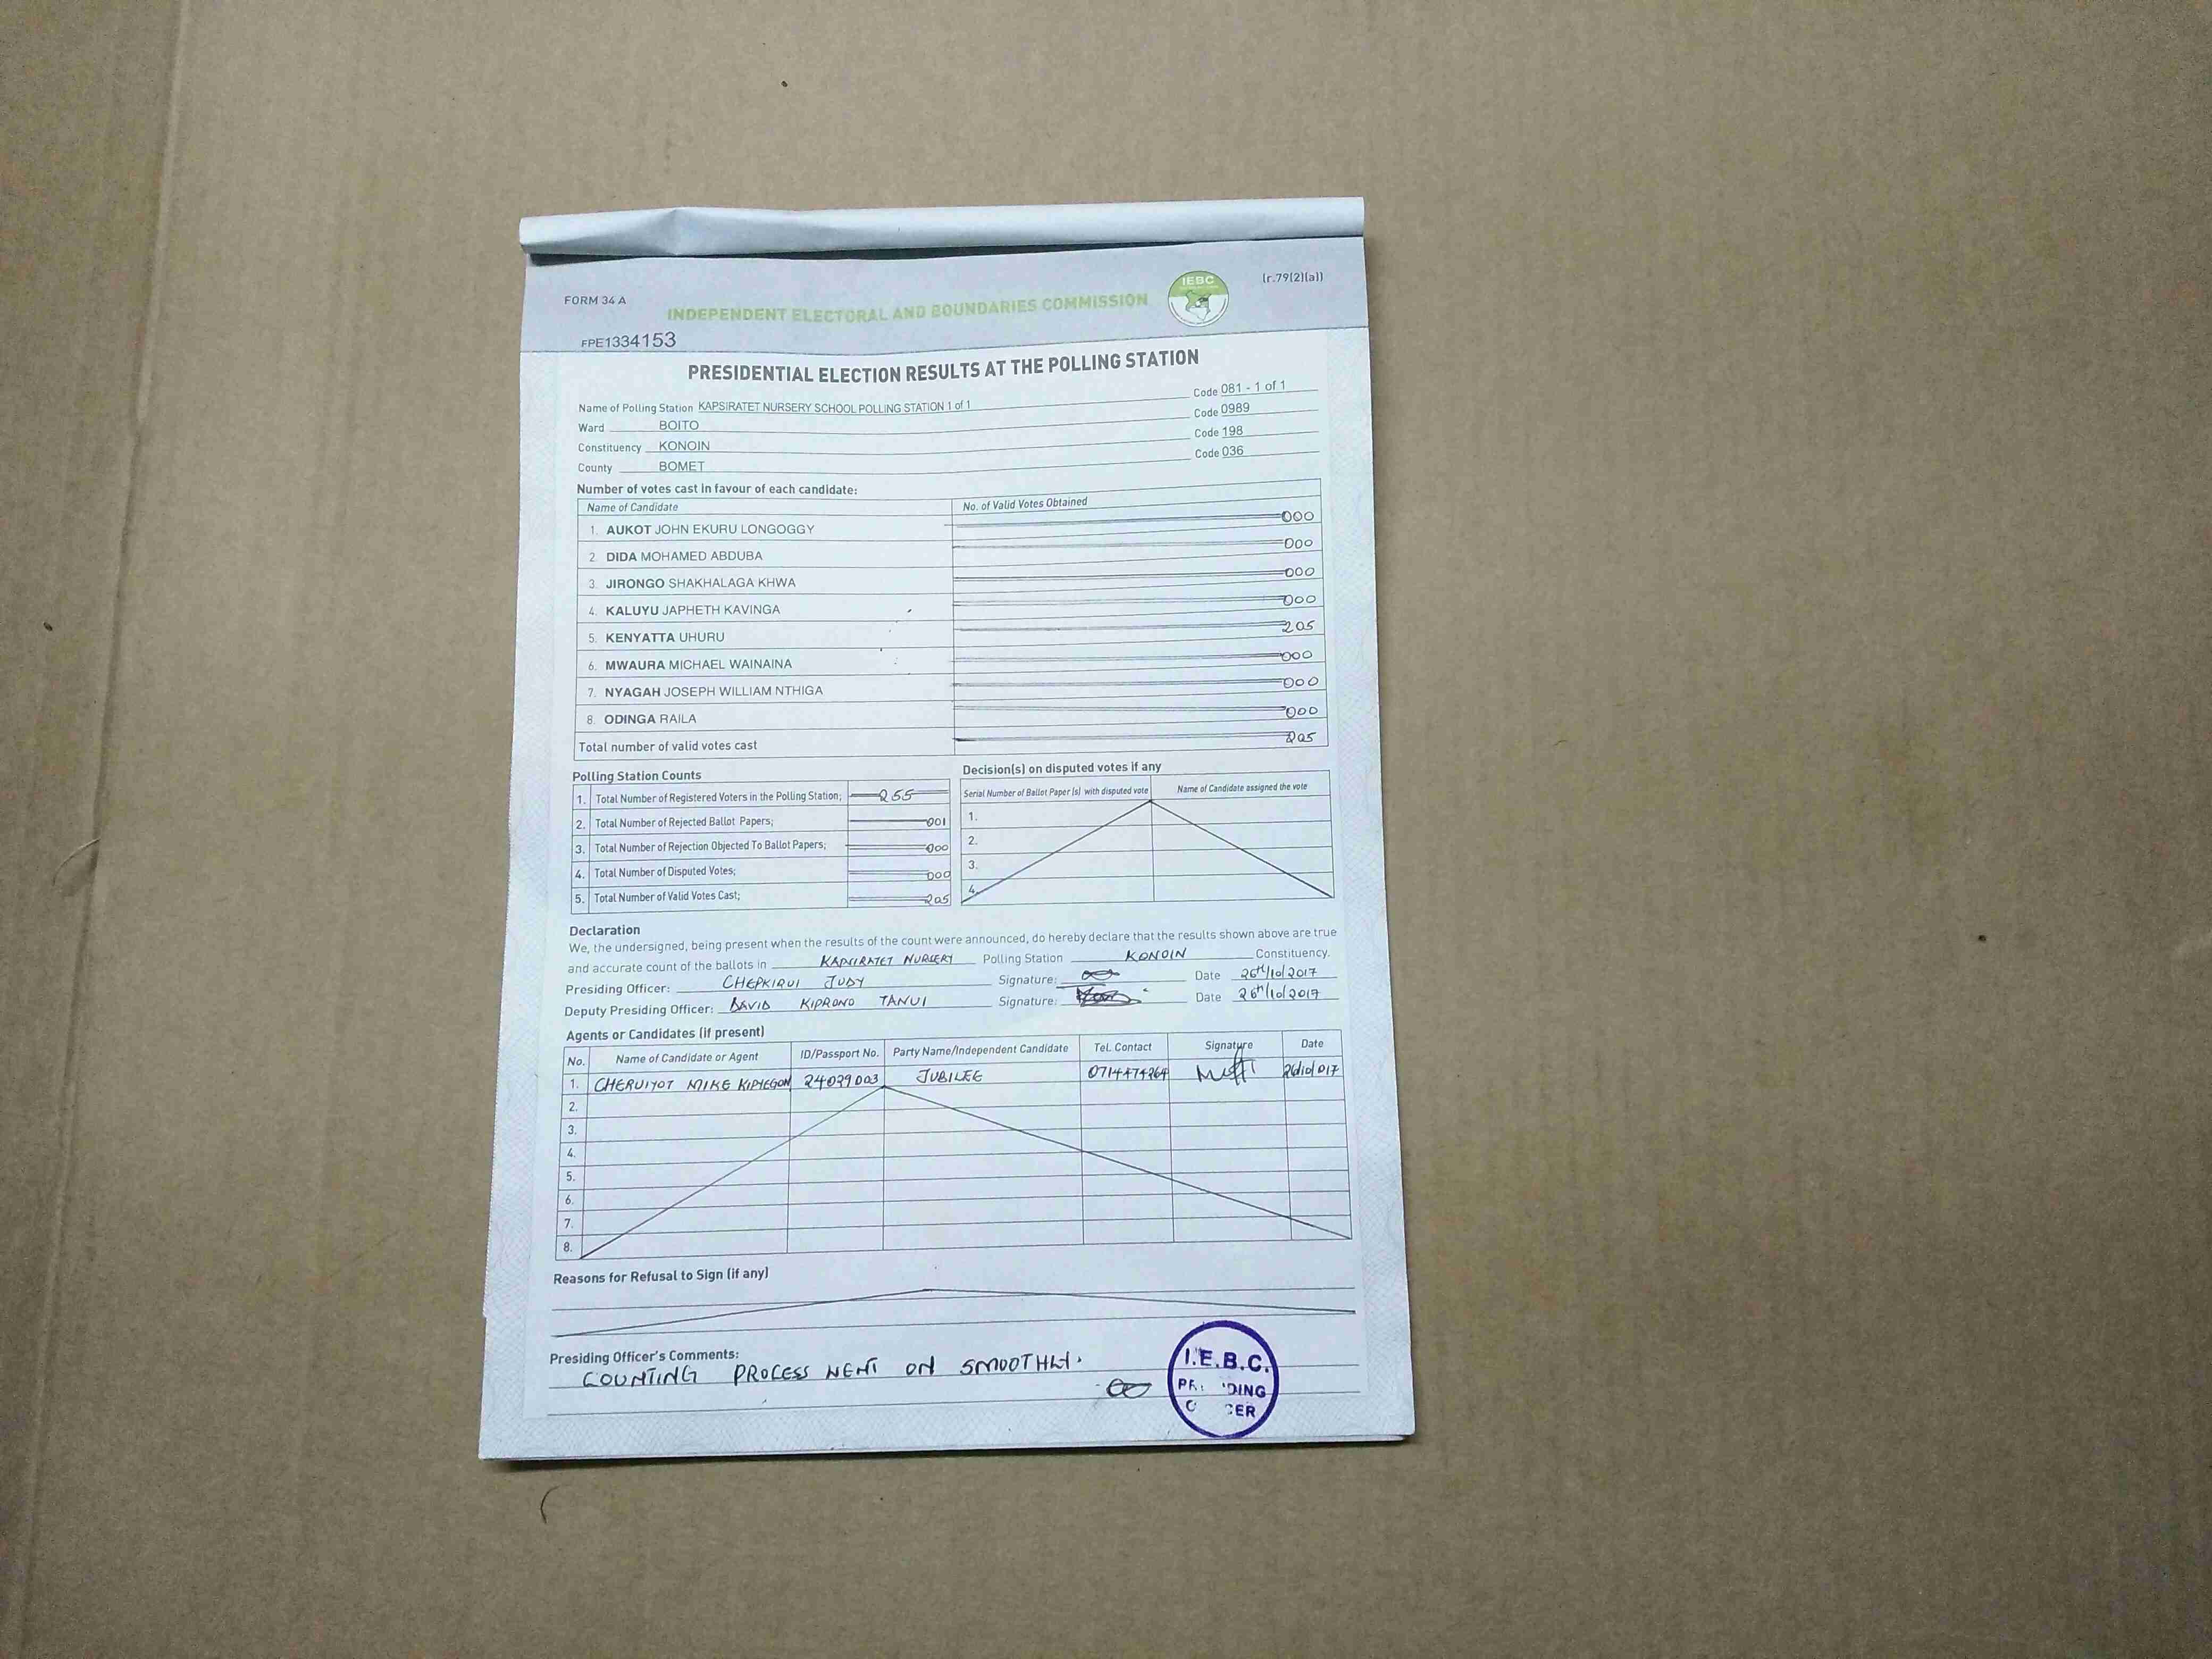 FORM 34 A
(r.79(2)(a))
IEBC
INDEPENDENT ELECTORAL AND BOUNDARIES COMMISSION
FPE1334153
PRESIDENTIAL ELECTION RESULTS AT THE POLLING STATION
Name of Polling Station KAPSIRATET NURSERY SCHOOL POLLING STATION 1 of 1 Code 081 - 1 of 1
Ward BOITO Code 0989
Constituency KONOIN Code 198
County BOMET Code 036
Number of votes cast in favour of each candidate:
Name of Candidate No. of Valid Votes Obtained
1. AUKOT JOHN EKURU LONGOGGY 000
2. DIDA MOHAMED ABDUBA 000
3. JIRONGO SHAKHALAGA KHWA 000
4. KALUYU JAPHETH KAVINGA 000
5. KENYATTA UHURU 205
6. MWAURA MICHAEL WAINAINA 000
7. NYAGAH JOSEPH WILLIAM NTHIGA 000
8. ODINGA RAILA 000
Total number of valid votes cast 205
Polling Station Counts
1. Total Number of Registered Voters in the Polling Station; 255
2. Total Number of Rejected Ballot Papers; 001
3. Total Number of Rejection Objected To Ballot Papers; 000
4. Total Number of Disputed Votes; 000
5. Total Number of Valid Votes Cast; 205
Decision(s) on disputed votes if any
Serial Number of Ballot Paper (s) with disputed vote Name of Candidate assigned the vote
1.
2.
3.
4.
Declaration
We, the undersigned, being present when the results of the count were announced, do hereby declare that the results shown above are true
and accurate count of the ballots in KAPSIRATET NURSERY Polling Station KONOIN Constituency.
Presiding Officer: CHEPKIRUI JUDY Signature: Date 26th/10/2017
Deputy Presiding Officer: DAVID KIPRONO TANUI Signature: Date 26th/10/2017
Agents or Candidates (if present)
No. Name of Candidate or Agent ID/Passport No. Party Name/Independent Candidate Tel. Contact Signature Date
1. CHERUIYOT MIKE KIPYEGON 24039003 JUBILEE 0714474264 26/10/017
2.
3.
4.
5.
6.
7.
8.
Reasons for Refusal to Sign (if any)
Presiding Officer's Comments:
COUNTING PROCESS WENT ON SMOOTHLY.
I.E.B.C.